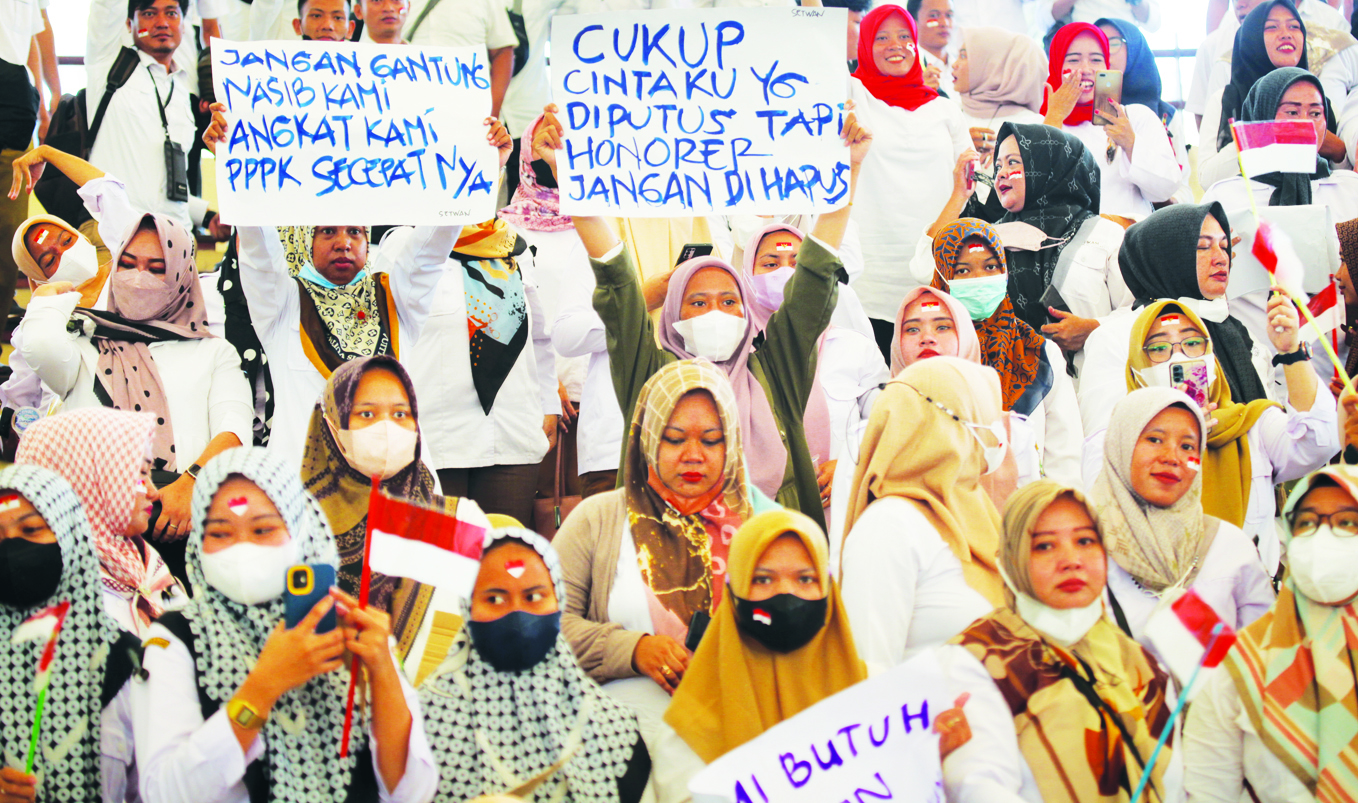 JANGAN GANTUNG
NASIB KAMI
ANGKAT KAMI
PPPK SECEPAT NYA
SETWAN
SETWAN
CUKUP
CINTAKU YG
DIPUTUS TAPI
HONORER
JANGAN DI HAPUS
MI BUTUH